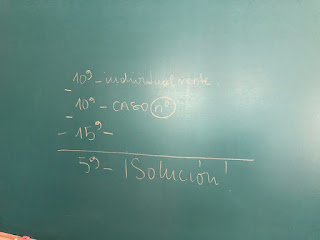 - 10' - individualmente.
- 10' - CASO nº
- 15' -
5' - ¡Solución!